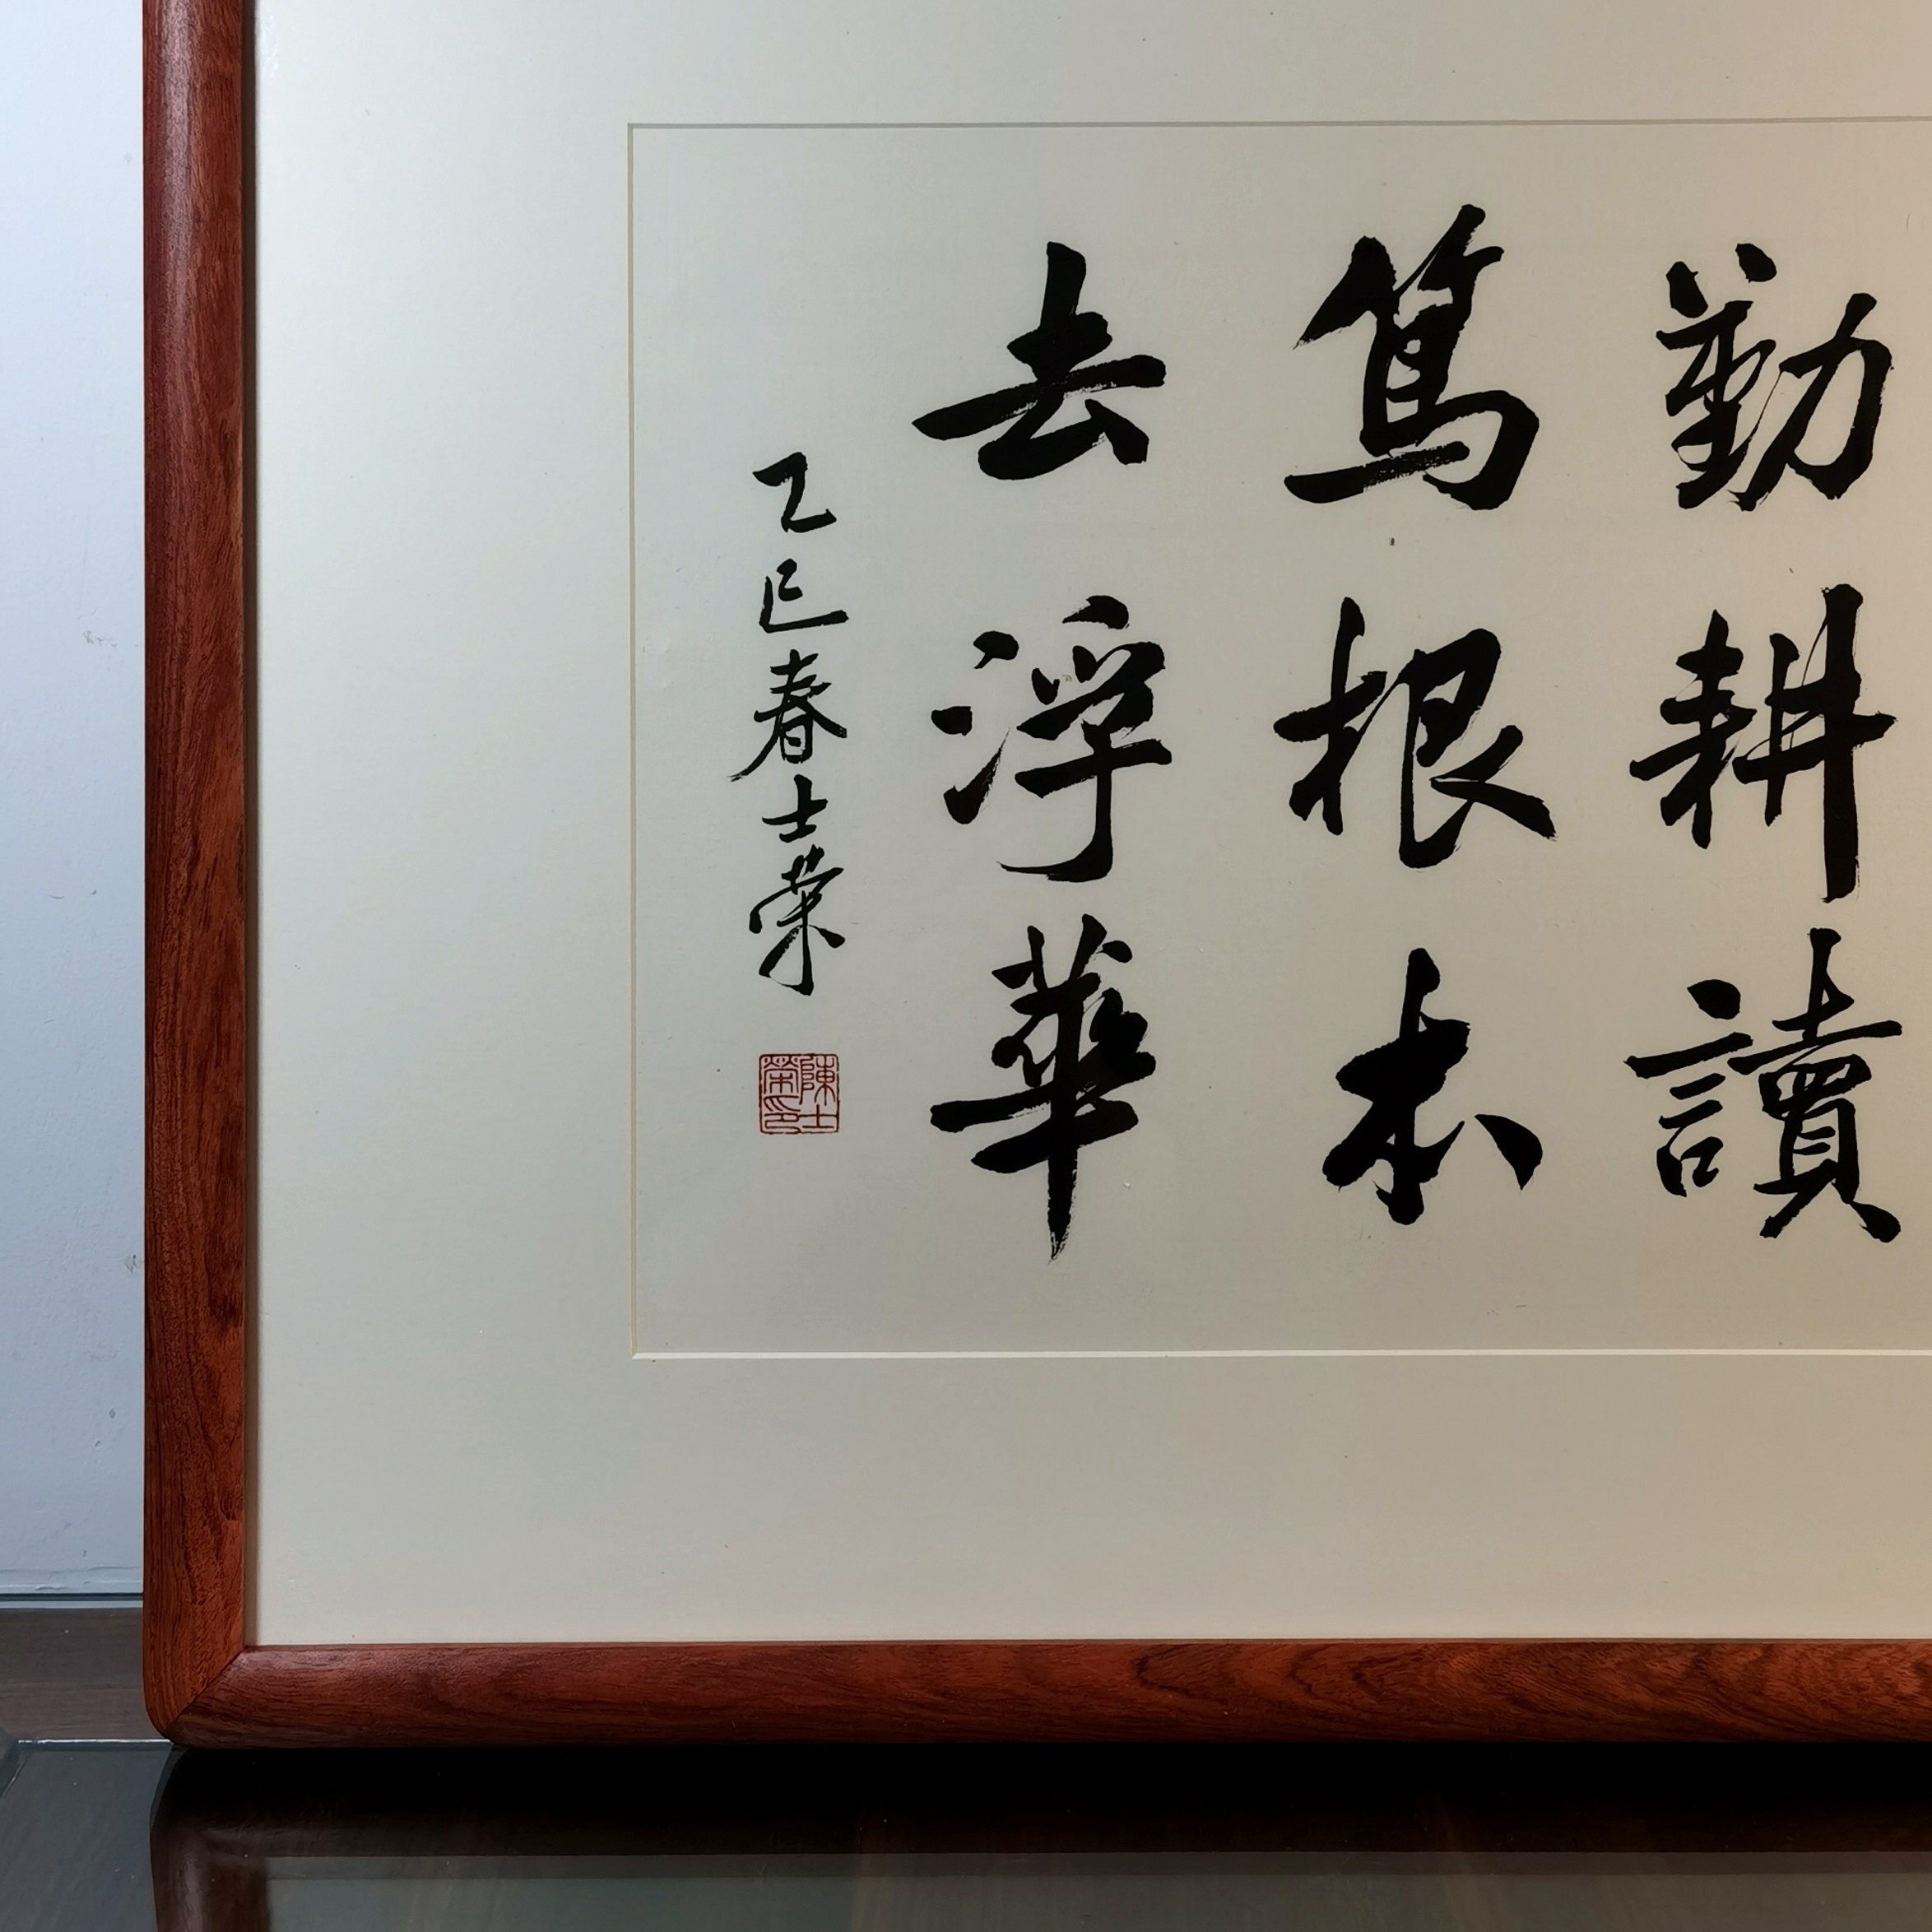 勤耕讀
篤根本
去浮華
乙巳春士荣
陳士榮印